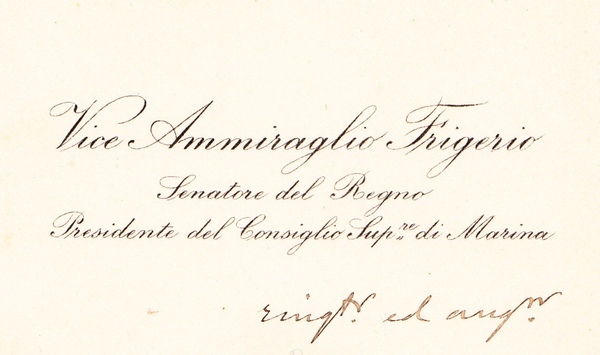 Vice Ammiraglio Frigerio
Senatore del Regno
Presidente del Consiglio Sup.re di Marina
ringtr. ed augrr.